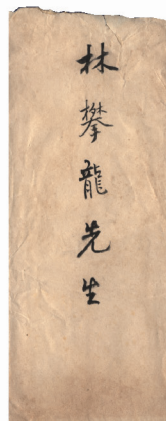 林攀龍先生